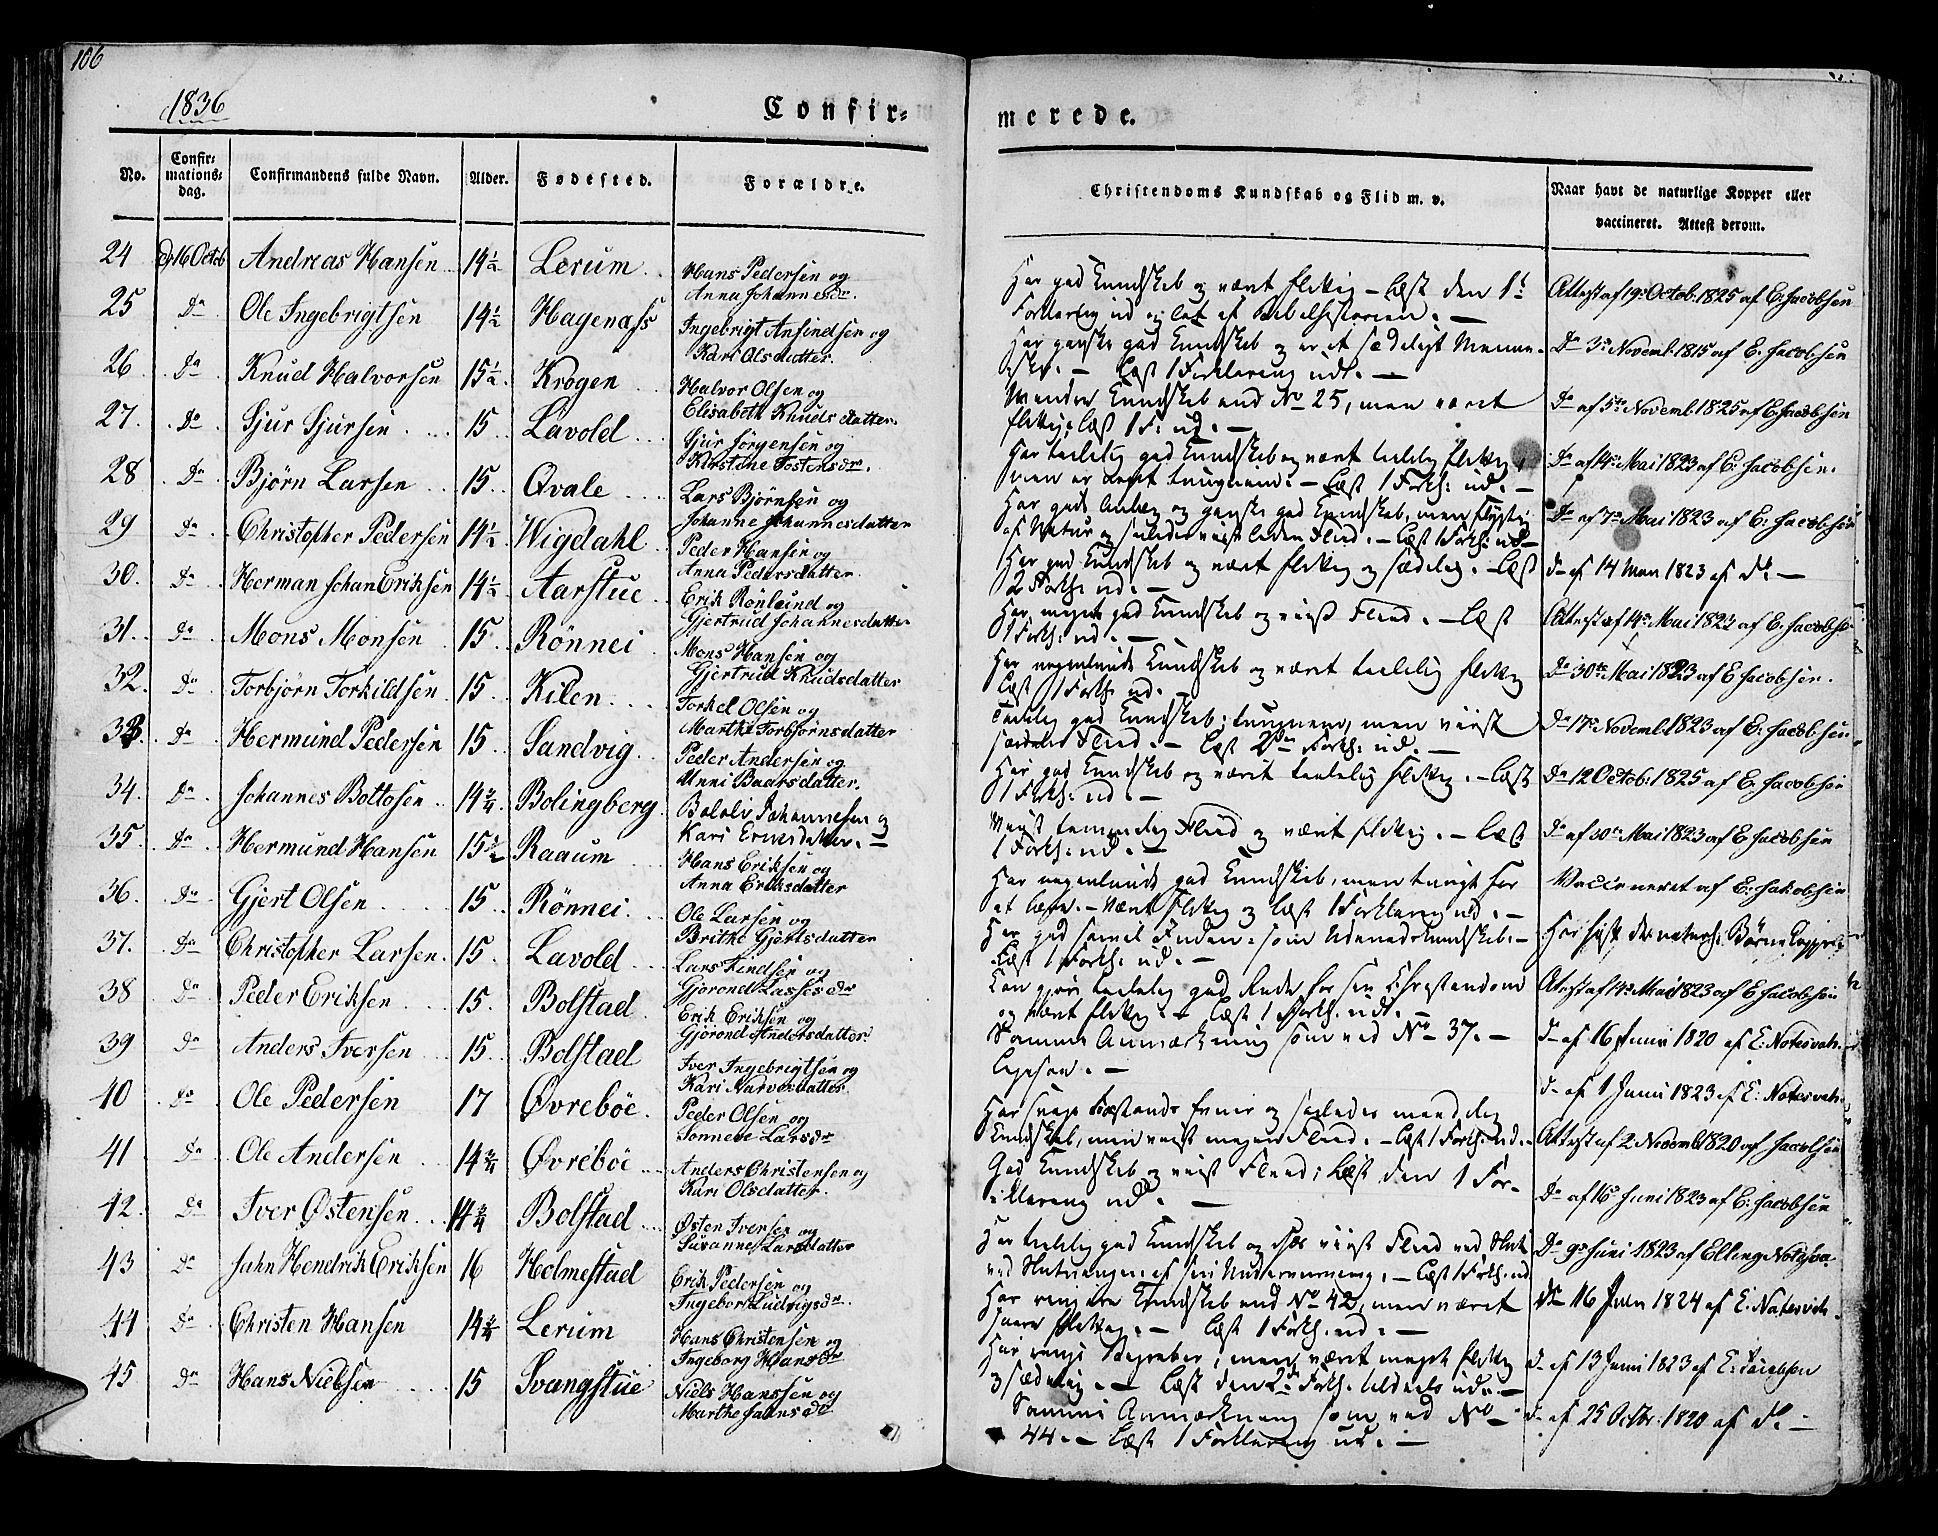 106
1836
Confir=
merede.
No.
Confir=
mations=
dag.
Confirmandens fulde Navn.
Alder.
Fødested.
Forældre.
Christendoms Kundskab og Flid m. v.
Naar havt de naturlige Kopper eller
vaccineret. Attest derom.
24 d 16 Octob Andreas Hansen 14½ Lerum Hans Pedersen og
Anna Johannesdr.
Har god Kundskab og været flittig – Læst den 1
Forklaring ud
Attest af 19 Octob. 1825 af E. Jacobsen
25 Do Ole Ingebrigtsen 14½ Hagenæss Ingebrigt Anfindsen og
Kari Olsdatter.
Har ganske god Kundskab og er et sædeligt Menne-
ske. – Læst 1 Forklaring ud. –
Do 3 Novemb. 1815 af E. Jacobsen
26 Do Knud Halvorsen 15½ Krogen Halvor Olsen og
Elisabeth Knudsdatter.
Mindre Kundskab end No 25, men været
flittig; Læst 1 F. ud. –
Do af 5te Novemb. 1825 af E. Jacobsen
27. Do Sjur Sjursen 15 Lavold Sjur Jörgensen og
Kirstine Tostensdr.
Har temmelig god Kundskab og været temmelig flittig,
men er tungnem. – Læst 1 Forkl. ud. –
Do af 14 Mai 1823 af E. Jacobsen.
28 Do Bjørn Larsen 15 Qvale Lars Bjørnsen og
Johanne Johannesdatter
Har gode Anlæg og ganske god Kundskab, men flygtig
af Natur – Læst 1 Forkl. ud –
Do af 7 Mai 1823 af E. Jacobsen
29 Do Christopher Pedersen 14½ Wigdahl Peder Hansen og
Anna Pedersdatter
Har god Kundskab og været flittig og sædelig. – Læst
2 Forkl. ud. –
Do af 14 Mai 1823 af do –
30. Do Herman Johan Eriksen 14½ Aarstue Erik Rönlund og
Gjertrud Johannesdatter
Har meget god Kundskab og viist Flid. – Læst
1 Forkl. ud. –
Attest af 14 Mai 1823 af E. Jacobsen
31. Do Mons Monsen 15 Rönnei Mons Hansen og
Gjertrud Knudsdatter
Har nogenlunde Kundskab og været temmelig flittig
Læst 1 Forkl. ud.
Do 30te Mai 1823 af E Jacobsen.
32. Do Torbjörn Torkildsen 15 Kilen Torkel Olsen og
Marthe Torbjörnsdatter
god Kundskab; tungnem, men viist
Flid. – Læst 2den Forkl. ud. –
Do 17 Novemb. 1823 af E. Jacobsen
33. Do Hermund Pedersen 15 Sandvig Peder Andersen og
Unni Baarsdatter.
Har god Kundskab og været temmelig flittig. – Læst
1 Forkl. ud. –
Do 12 Octob. 1825 af E. Jacobsen
34. Do Johannes Bottosen 14¾ Bolingberg Johannesen og
Kari
Viist temmelig Flid og været flittig. – Læst
1 Forkl. ud. –
Do af 30te Mai 1823 af E. Jacobsen
35. Do Hermund Hansen 15½ Raaum Hans Eriksen og
Anna Eriksdatter
Har nogenlunde god Kundskab, men tungt for
at lære. – Været flittig og læst 1 Forklaring ud. –
Vaccineret af E. Jakobsen
36. Do Gjert Olsen 15 Rönnei Ole Larsen og
Brithe Gjertsdatter
Har god som Udenadskundskab. –
Læst 1 Forkl. ud. –
Har havt de naturl. Börne Kopper
37. Do Christopher Larsen 15. Lavold Lars Findsen og
Gjorond Lassesdr
Kan gjøre temmelig god Rede for sin Christendom
og været flittig. – Læst 1 Forkl. ud. –
Attest af 14 Mai 1823 af E Jacobsen
38 Do Peder Eriksen 15. Bolstad Erik Eriksen og
Gjorond Andersdatter
Samme Anmærkning som ved No 37. –
Do af 16 Juni 1820 af E. Notesvah
39 Do Anders Iversen 15. Bolstad Iver Ingebrigtsen og
Kari Narvesdatter
Do af 1 Juni 1823 af E. Notesvah.
40 Do Ole Pedersen 17 Øvreböe Peder Olsen og
Sonneve Larsdr
Har svage Forstands Evner og saaledes maadelig
Kundskab, men viist megen Flid. – Læst 1 Forkl. ud. –
Attest af 2 Novemb. 1820 af Jacobsen
41 Do Ole Andersen 14¾ Øvreböe Anders Christensen og
Kari Olsdatter.
God Kundskab og viist Flid; Læst den 1 For-
klaring ud. –
Do af 16 Juni 1823 af E. Jacobsen
42. Do Iver Østensen 14¾ Bolstad Østen Iversen og
Susanne Larsdatter
Har temmelig god Kundskab og viist Flid ved
Slutningen af sin Underviisning. – Læst 1 Forkl. ud
Do 9 Juni 1823 af Elling Notesva.
43 Do Jahn Hendrik Eriksen 16 Holmestad Erik Pedersen og
Ingebor Ludvigsdr.
Har ringere Kundskab end No 42, men været
flittig. – Læst 1 Forkl. ud. –
Do 16 Juni 1824 af E. Notesvah.
44 Do Christen Hansen 14¾ Lerum Hans Christensen og
Ingeborg Hansdr
Har ringe Begreber, men været meget flittig
og sædelig. – Læst den 2den Forkl. tildeels ud. –
do af 13 Juni 1823 af E. Jacobsen
45 Do Hans Nielsen 15 Svangstue Niels Hanssen og
Marthe Jahnsdr
Samme Anmærkning som ved No
44. – Læst 1 Forklaring ud. –
do af 25 Octbr. 1820 af do. –